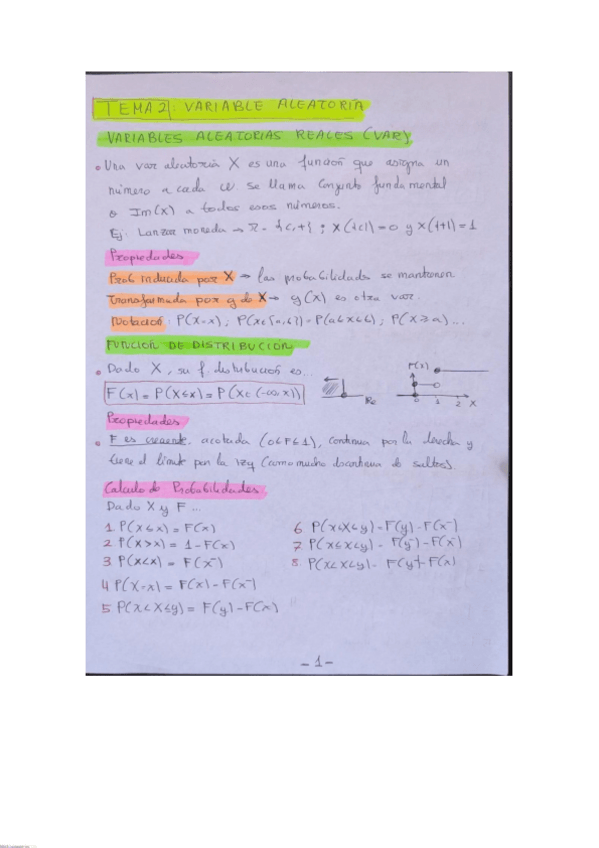 TEMA 2: VARIABLE ALEATORIA
VARIABLES ALEATORIAS REALES (VAR)
• Una var aleatoria X es una función que asigna un
número a cada w se llama Conjunto fundamental
o Im(X) a todos esos números.
Ej: Lanzar moneda → Ω = {c,+} ; X({c}) = 0 y X({+}) = 1
Propiedades
Prob inducida por X → las probabilidads se mantienen
Transformada por g de X → g(X) es otra var.
Notación: P(X=x); P(X∈[a,b]) = P(a≤X≤b); P(X≥a)...
FUNCIÓN DE DISTRIBUCIÓN
• Dado X, su f. distribución es...
F(x) = P(X≤x) = P(X∈(-∞,x])
F(x)
0 1 2 X
Propiedades
• F es creciente, acotada (0≤F≤1), continua por la derecha y
tiene el límite por la izq (como mucho discontinua de saltos).
Calculo de Probabilidades
Dado X y F ...
1 P(X≤x) = F(x)
2 P(X>x) = 1-F(x)
3 P(X<x) = F(x⁻)
4 P(X=x) = F(x) - F(x⁻)
5 P(x<X≤y) = F(y) - F(x)
6 P(x≤X≤y) = F(y) - F(x⁻)
7 P(x≤X<y) = F(y⁻) - F(x⁻)
8. P(x<X<y) = F(y⁻) - F(x)
- 1 -